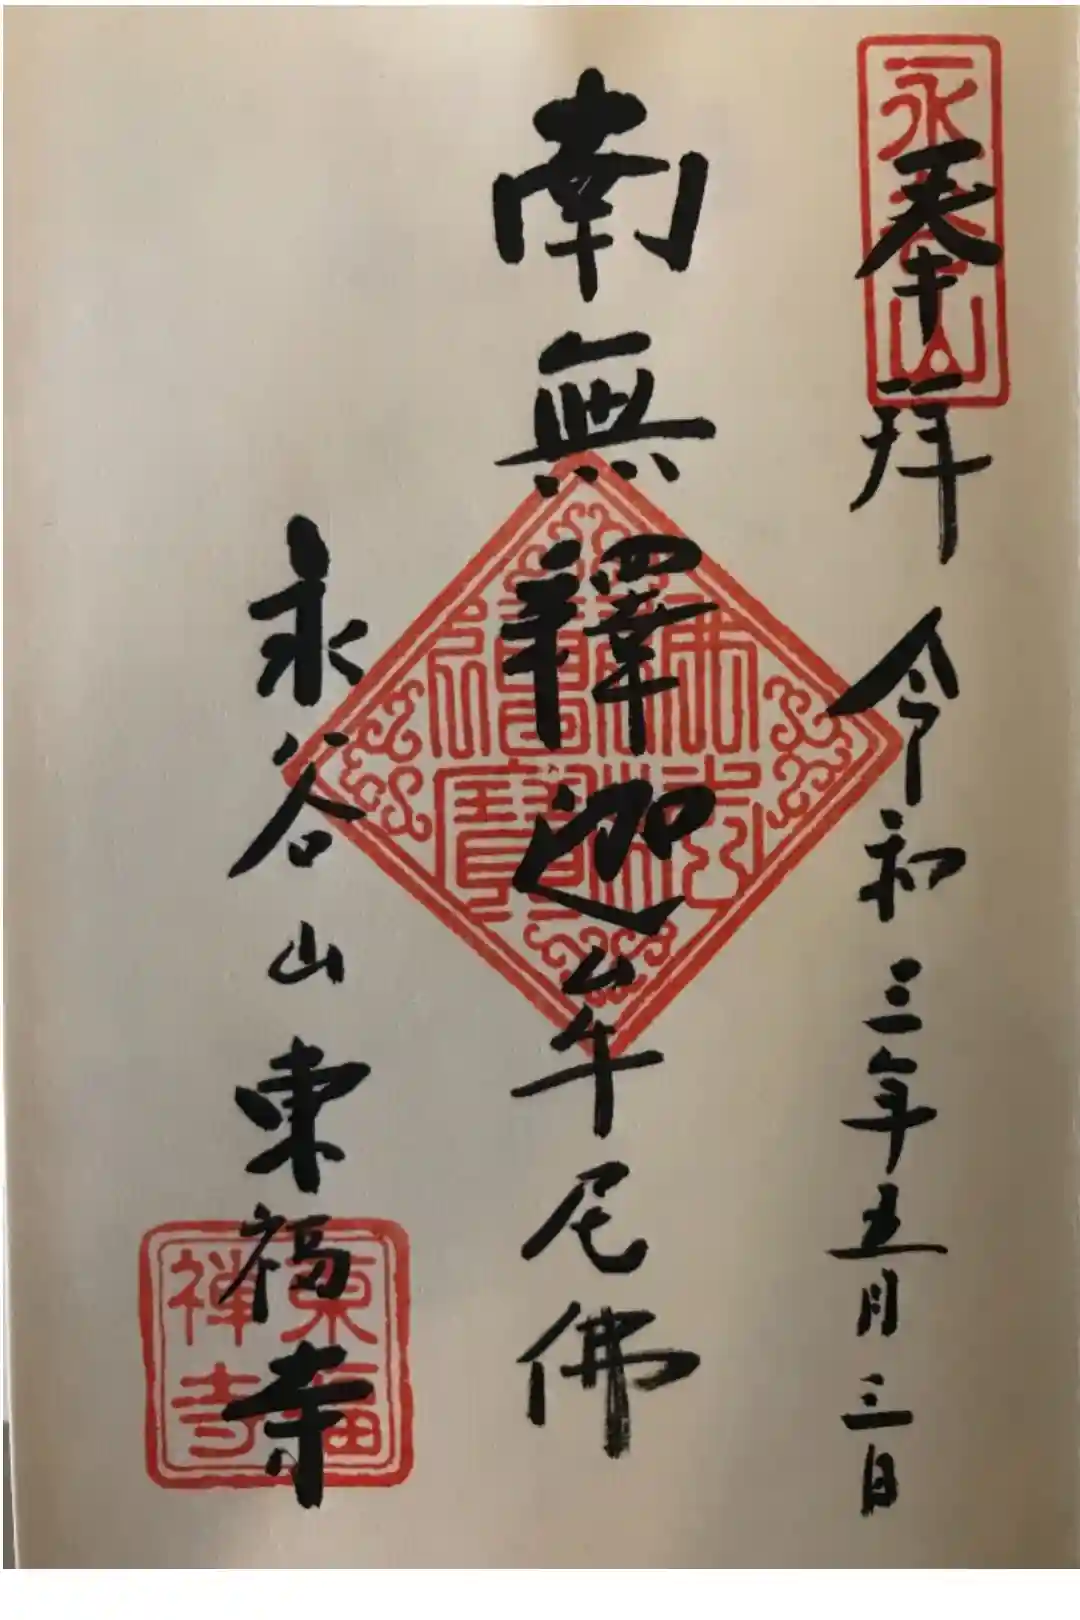 奉拝 令和三年五月三日
南無釋迦牟尼佛
永谷山東福寺
永谷山
佛法僧寶
東福禅寺